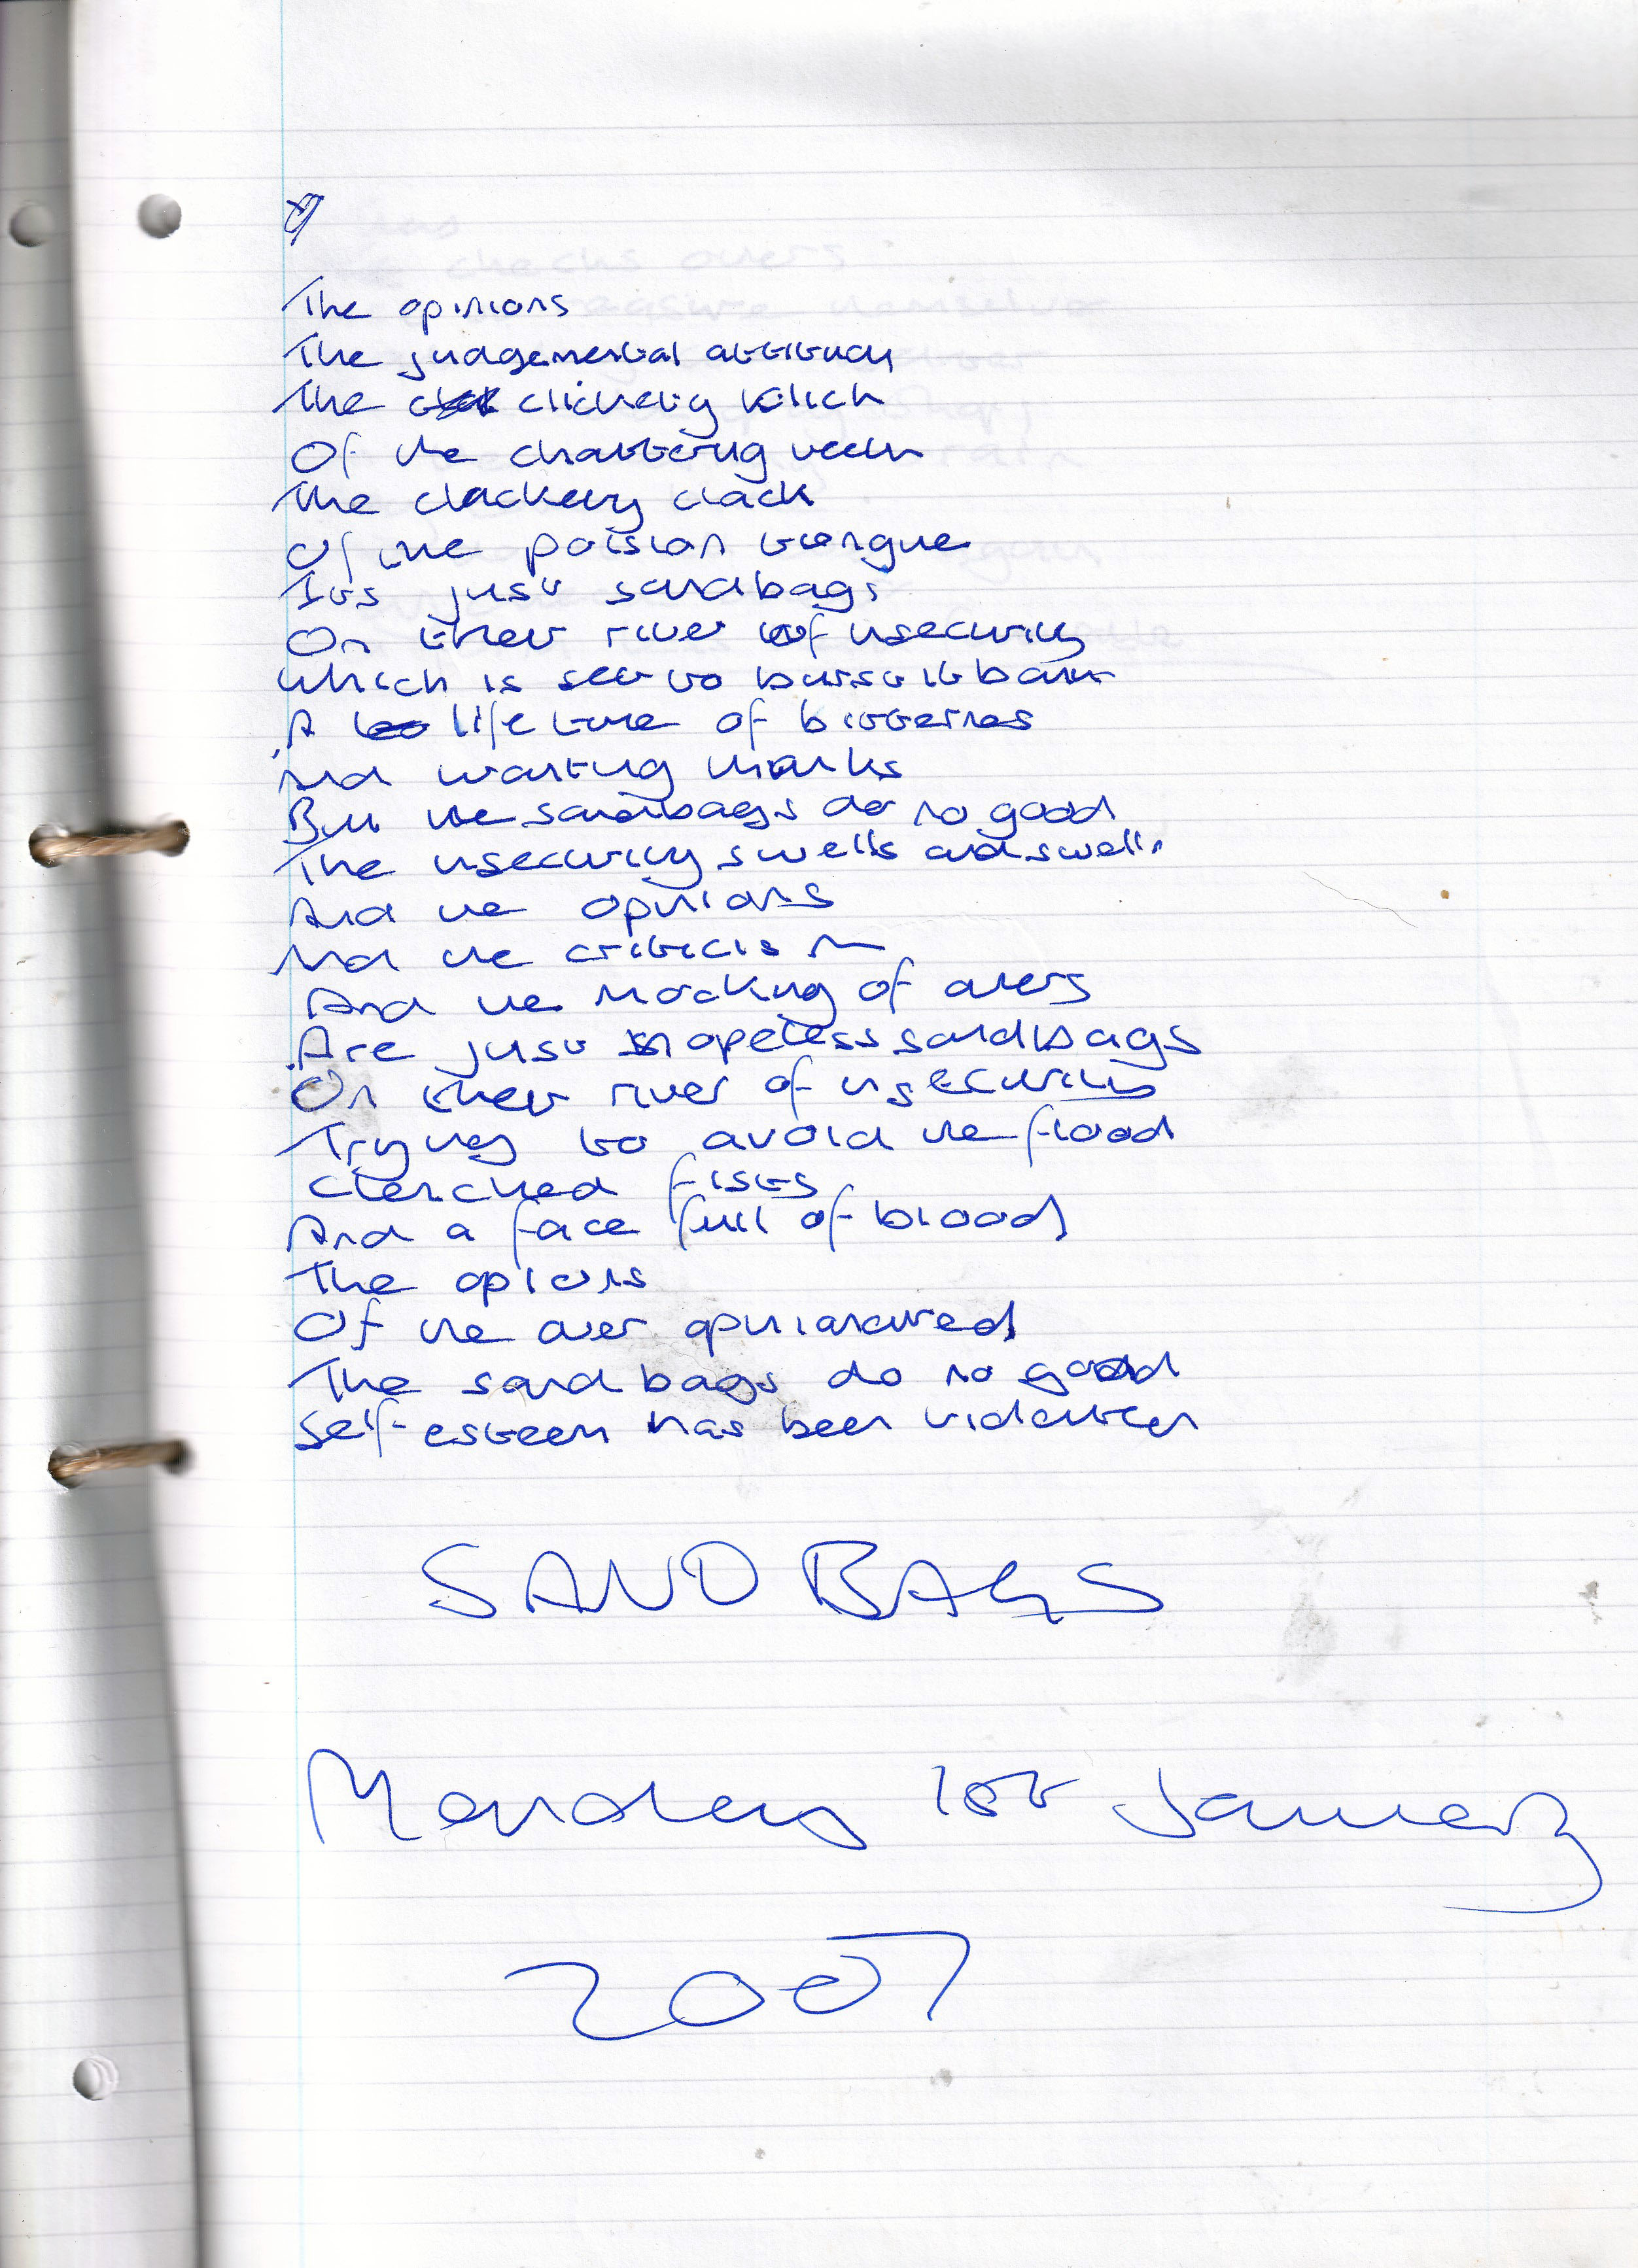 The opinions
The judgemental attitudes
The clickety klick
Of the chattering teeth
The clackety clack
Of the poison tongue
Its just sandbags
On their river of insecurity
Which is set to burst it bank
A life time of bitterness
And wanting thanks
But the sandbags do no good
The insecurity swells and swells
And the opinions
And the criticism
And the mocking of others
Are just hopeless sandbags
On their river of insecurity
Trying to avoid the flood
Clenched fists
And a face full of blood
The opions
Of the over opinionated
The sandbags do no good
Self-esteem has been
SANDBAGS
Monday 1st January
2007